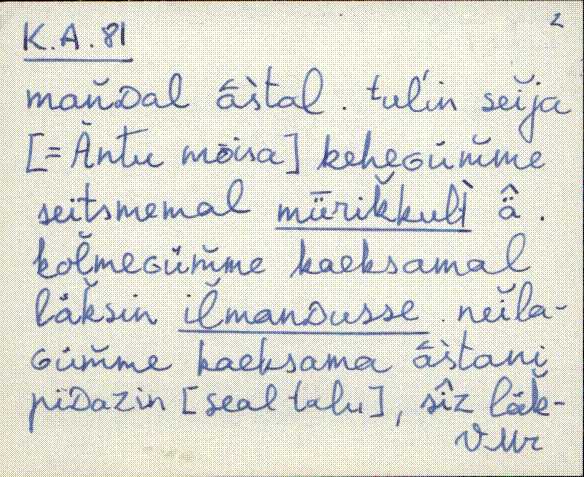 2
K.A. 81
man̆Dal âs̀tal. tuĺin seĭja
[= Āntu mõisa] keheGüm̆me
seitsmemal mūrik̆kulì ä̂.
kol̆meGüm̆me kaeksamal
läk̆sin il̆manDusse. neĭla-
Güm̆me kaeksama âs̀tani
piDazin [seal talu], sîz läk-
VMr